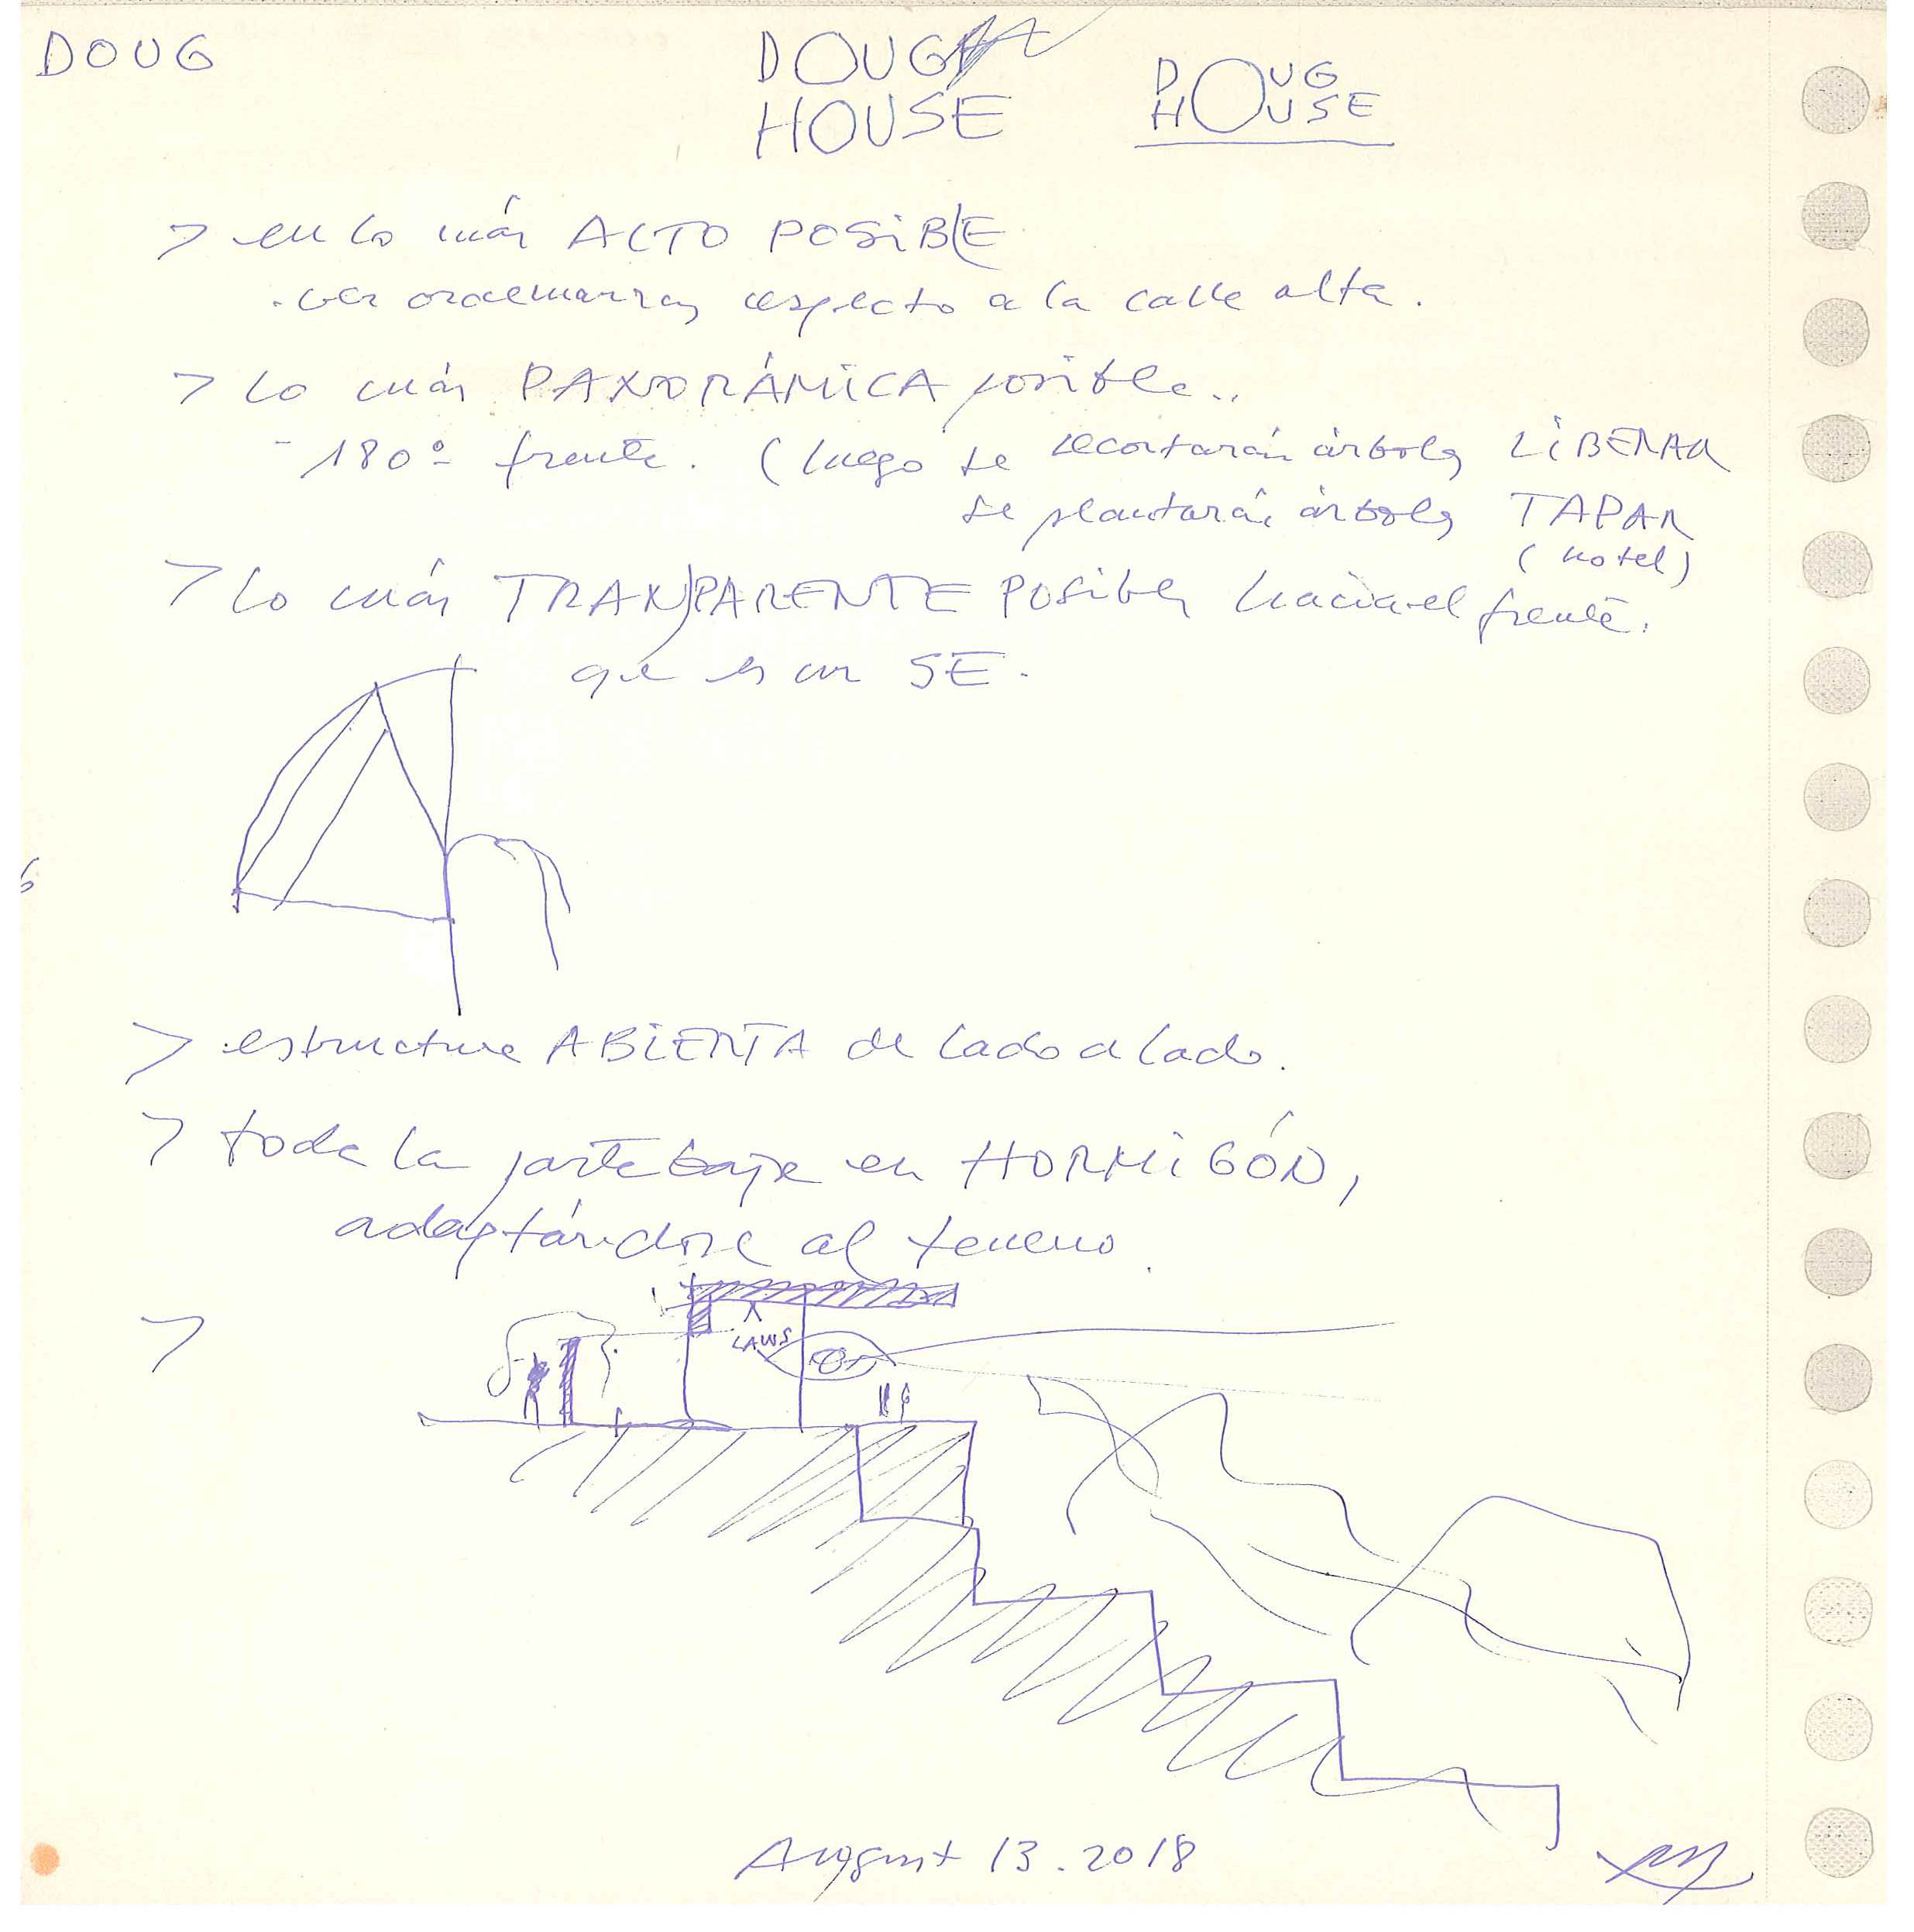 DOUG
DOUG
HOUSE
DOUG
HOUSE
> en lo más ALTO POSIBLE
. ver ordenanzas respecto a la calle alta.
> lo más PANORÁMICA posible..
- 180º frente. (luego se recortarán árboles LIBERAR
se plantarán árboles TAPAR
(hotel)
> lo más TRANSPARENTE POSIBLE hacia el frente.
que es un SE.
> estructura ABIERTA de lado a lado.
> toda la parte baja en HORMIGÓN,
adaptándose al terreno.
>
August 13.2018